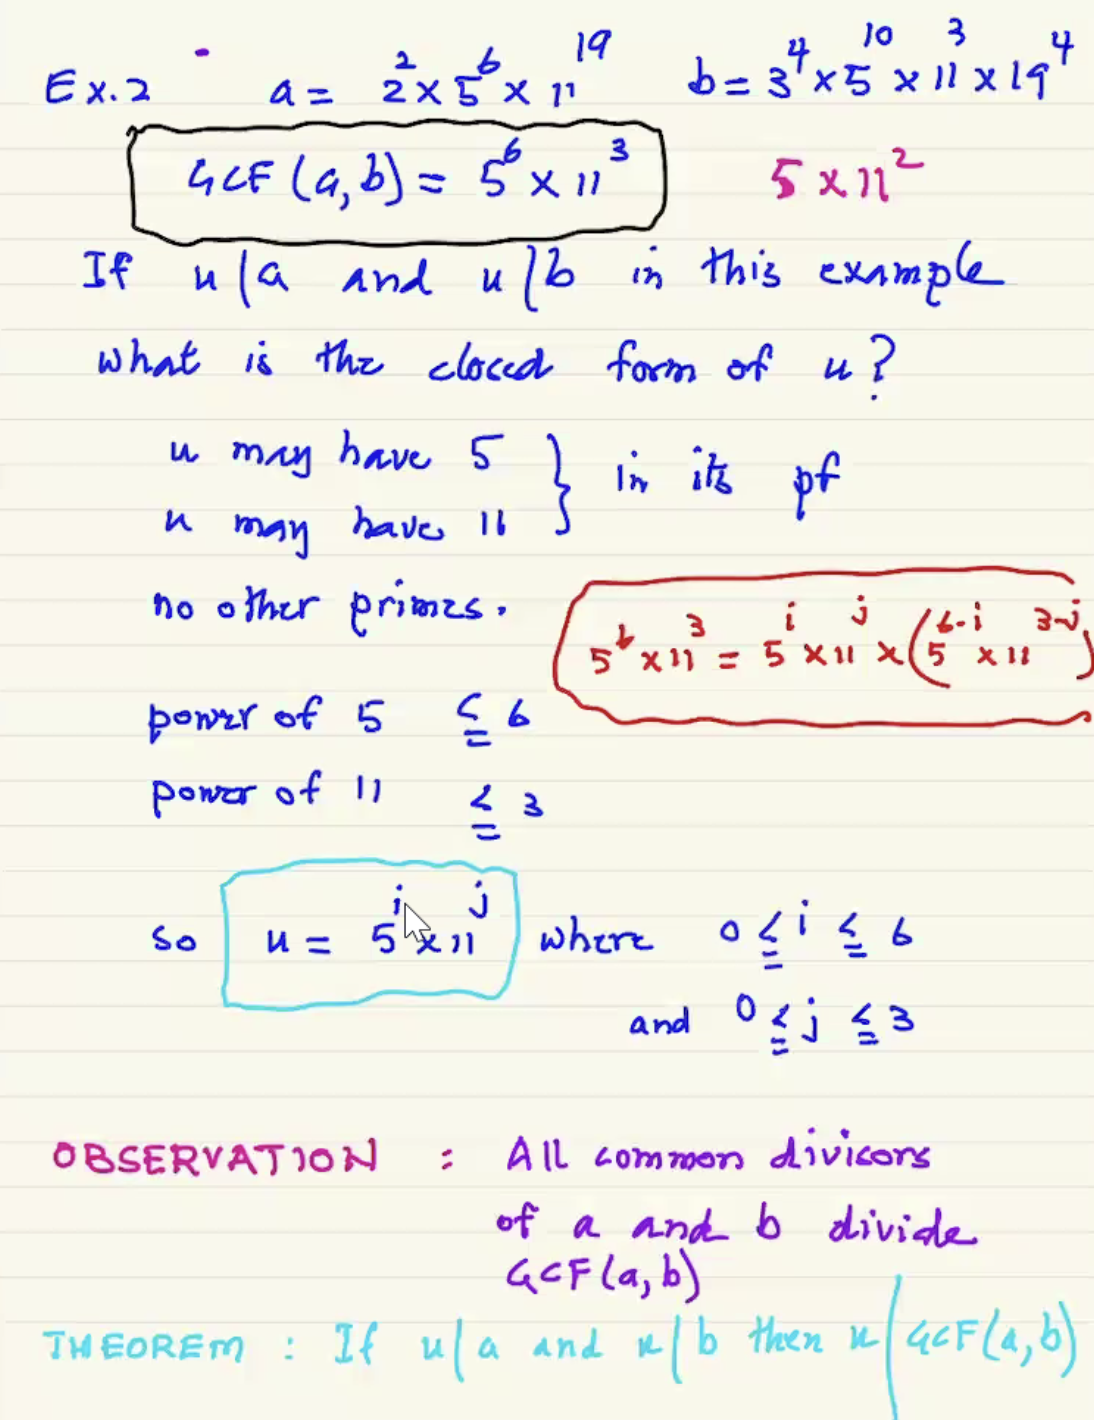 Ex.2 a = 2² × 5⁶ × 11¹⁹ b = 3⁴ × 5¹⁰ × 11³ × 19⁴
GCF (a, b) = 5⁶ × 11³ 5 × 11²
If u | a and u | b in this example
what is the closed form of u?
u may have 5 } in its pf
u may have 11
no other primes.
5⁶ × 11³ = 5ⁱ × 11ʲ × (5⁶⁻ⁱ × 11³⁻ʲ)
power of 5 ≤ 6
power of 11 ≤ 3
so u = 5ⁱ × 11ʲ where 0 ≤ i ≤ 6
and 0 ≤ j ≤ 3
OBSERVATION : All common divisors
of a and b divide
GCF(a, b)
THEOREM : If u | a and u | b then u | GCF(a, b)